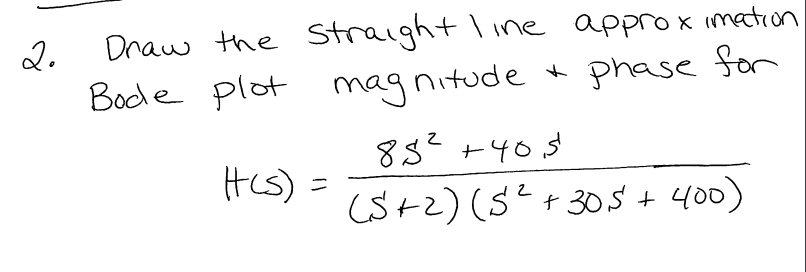 2. Draw the straight line approximation
Bode plot magnitude + phase for
H(s) = (8s² + 40s) / ((s+2)(s² + 30s + 400))